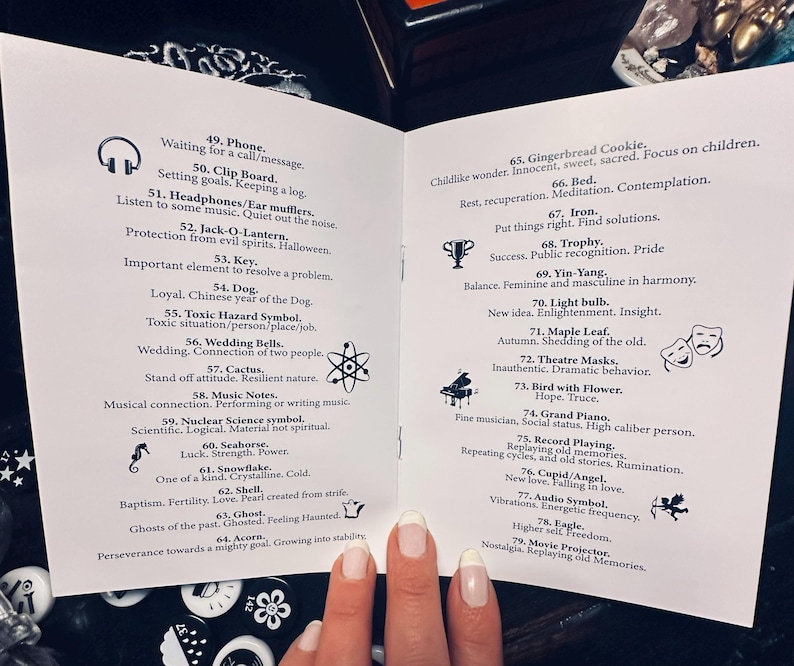 49. Phone.
Waiting for a call/message.
50. Clip Board.
Setting goals. Keeping a log.
51. Headphones/Ear mufflers.
Listen to some music. Quiet out the noise.
52. Jack-O-Lantern.
Protection from evil spirits. Halloween.
53. Key.
Important element to resolve a problem.
54. Dog.
Loyal. Chinese year of the Dog.
55. Toxic Hazard Symbol.
Toxic situation/person/place/job.
56. Wedding Bells.
Wedding. Connection of two people.
57. Cactus.
Stand off attitude. Resilient nature.
58. Music Notes.
Musical connection. Performing or writing music.
59. Nuclear Science symbol.
Scientific. Logical. Material not spiritual.
60. Seahorse.
Luck. Strength. Power.
61. Snowflake.
One of a kind. Crystalline. Cold.
62. Shell.
Baptism. Fertility. Love. Pearl created from strife.
63. Ghost.
Ghosts of the past. Ghosted. Feeling Haunted.
64. Acorn.
Perseverance towards a mighty goal. Growing into stability.
65. Gingerbread Cookie.
Childlike wonder. Innocent, sweet, sacred. Focus on children.
66. Bed.
Rest, recuperation. Meditation. Contemplation.
67. Iron.
Put things right. Find solutions.
68. Trophy.
Success. Public recognition. Pride
69. Yin-Yang.
Balance. Feminine and masculine in harmony.
70. Light bulb.
New idea. Enlightenment. Insight.
71. Maple Leaf.
Autumn. Shedding of the old.
72. Theatre Masks.
Inauthentic. Dramatic behavior.
73. Bird with Flower.
Hope. Truce.
74. Grand Piano.
Fine musician, Social status. High caliber person.
75. Record Playing.
Replaying old memories.
Repeating cycles, and old stories. Rumination.
76. Cupid/Angel.
New love. Falling in love.
77. Audio Symbol.
Vibrations. Energetic frequency.
78. Eagle.
Higher self. Freedom.
79. Movie Projector.
Nostalgia. Replaying old Memories.
142
37